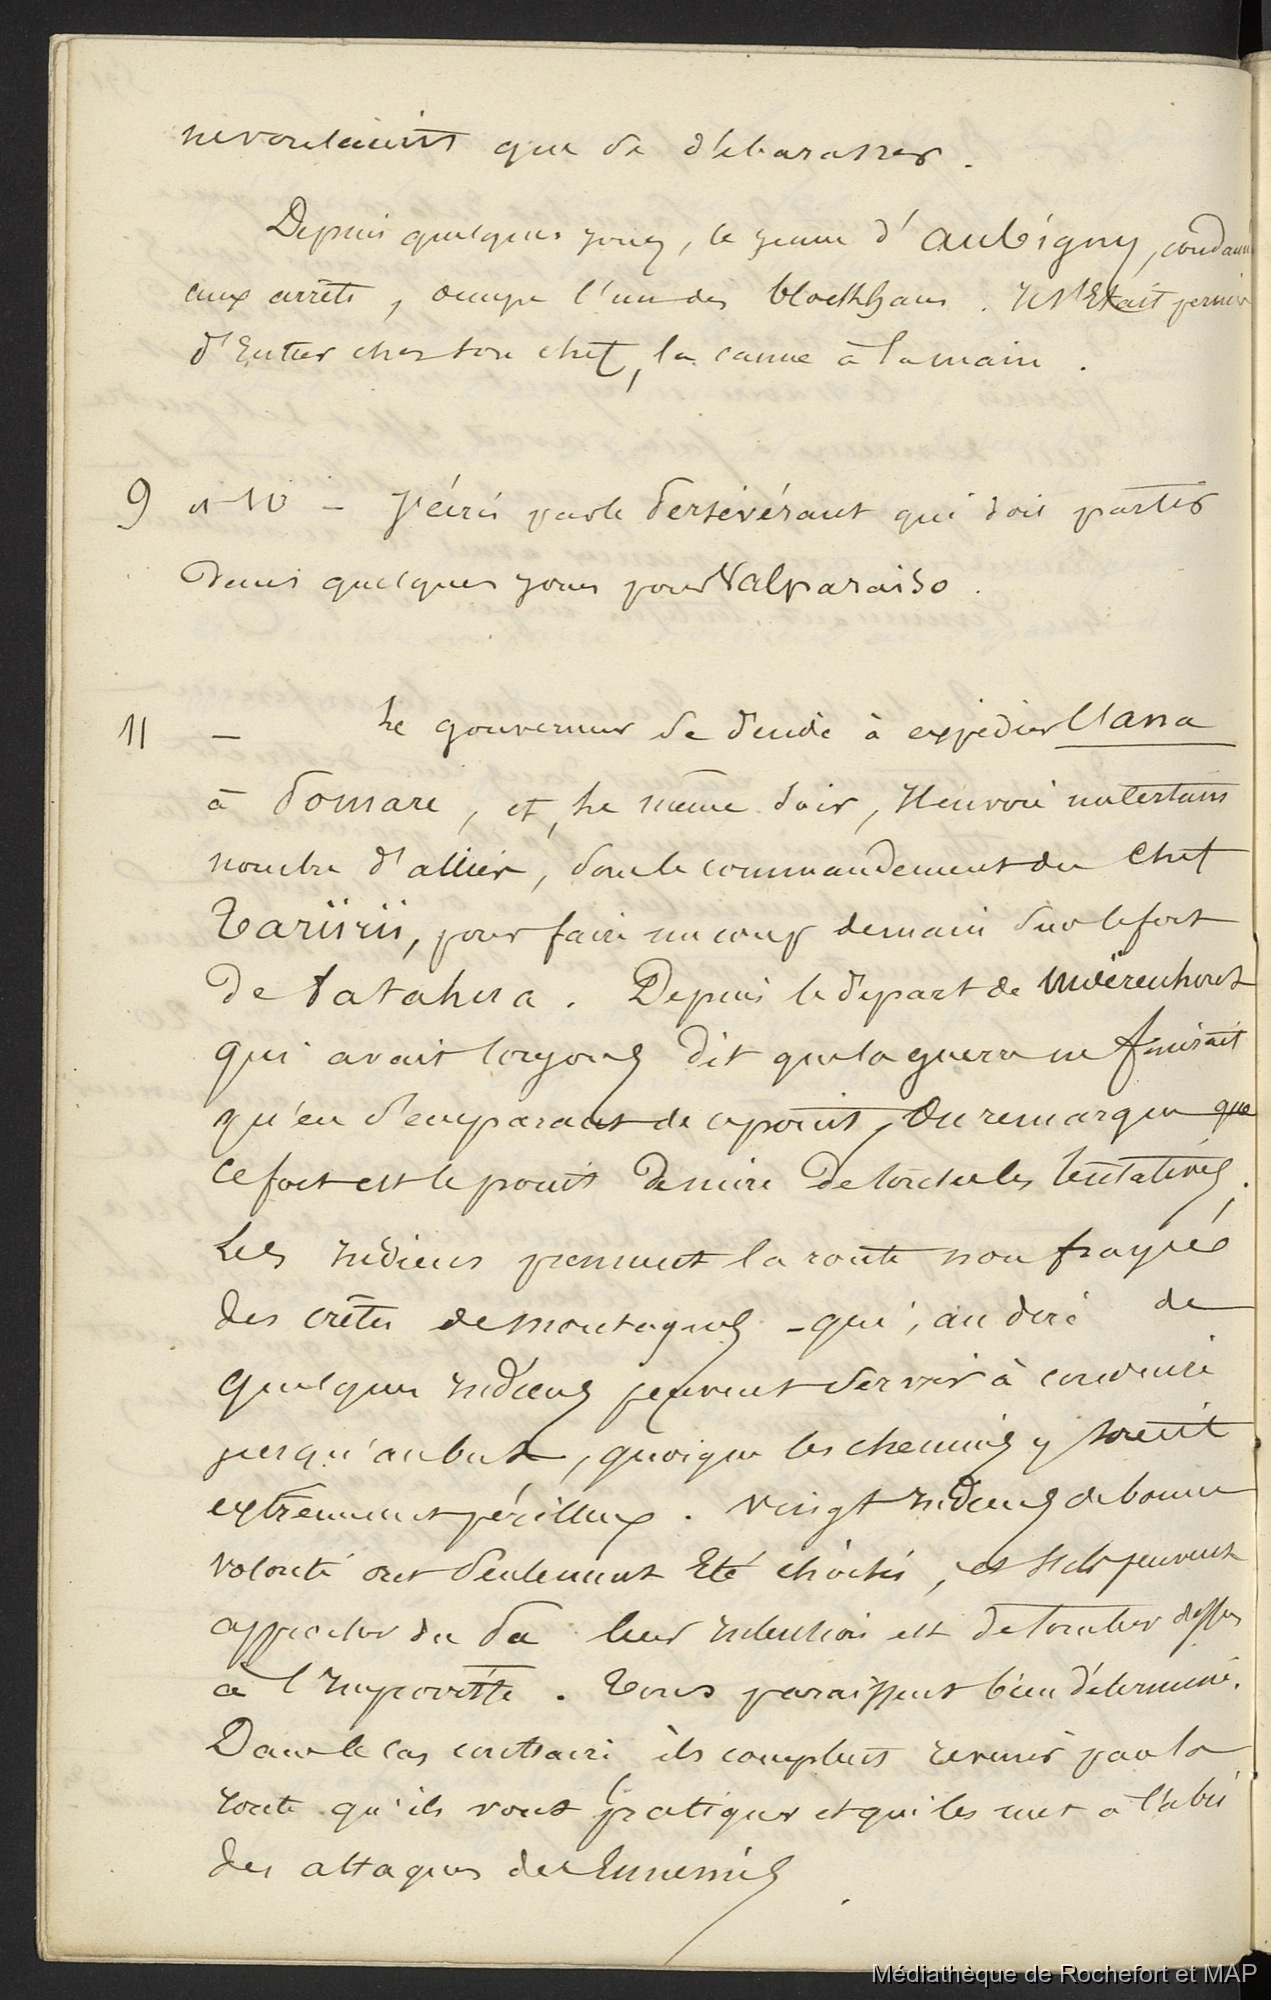 ne voulaient que se débarasser.
Depuis quelques jours, le jeune d'Aubigny, condamné
aux arrêts, occupe l'un des blockhaus. Il s'était permis
d'entrer chez son chef, la canne à la main.
9 et 10 – J'écris par le Persévérant qui doit partir
dans quelques jours pour Valparaiso.
11 – Le gouverneur se décide à expédier
à Pomare, et, le même soir, il envoie un certain
nombre d'alliés, sous le commandement du chef
Tariirii, pour faire un coup demain sur le fort
de Fatahua. Depuis le départ de Moerenhout
qui avait toujours dit que la guerre ne finirait
qu'en s'emparant de ce point, on remarque que
ce fort est le point de mire de toutes les tentatives.
Les indiens prennent la route non frayée
des crêtes de montagnes – qui, au dire de
quelques indiens peuvent servir à conduire
jusqu'au but, quoique les chemins y soient
extrêmement périlleux. Vingt indiens de bonne
volonté ont seulement été choisis, et s'ils peuvent
approcher du Pa leur intention est de tomber dessus
à l'improviste. Tous paraissent bien déterminés.
Dans le cas contraire ils comptent revenir par la
route qu'ils vont pratiquer et qui les met à l'abri
des attaques des Ennemis.
Médiathèque de Rochefort et MAP